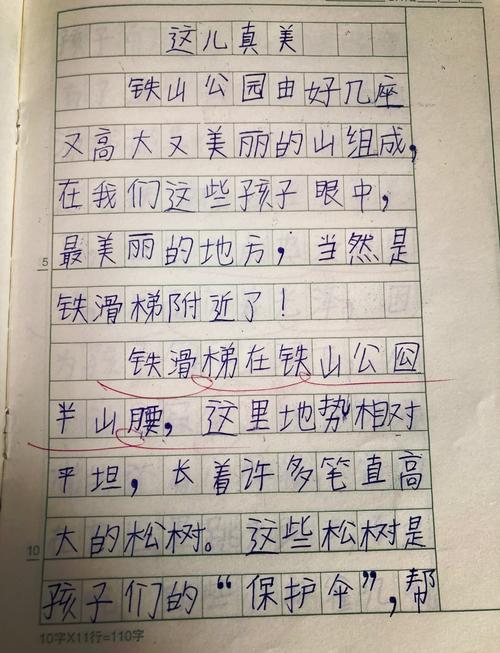 这儿真美
铁山公园由好几座
又高大又美丽的山组成,
在我们这些孩子眼中,
最美丽的地方,当然是
5
铁滑梯附近了!
铁滑梯在铁山公园
半山腰,这里地势相对
平坦,长着许多笔直高
大的松树。这些松树是
10
孩子们的“保护伞”,帮
10字X11行=110字